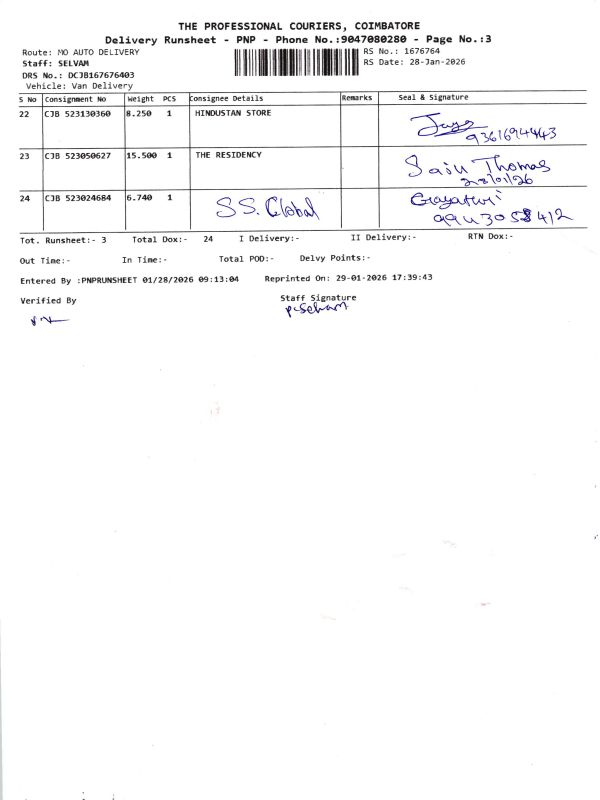 THE PROFESSIONAL COURIERS, COIMBATORE
Delivery Runsheet - PNP - Phone No.:9047080280 - Page No.:3
Route: MO AUTO DELIVERY RS No.: 1676764
Staff: SELVAM RS Date: 28-Jan-2026
DRS No.: DCJB167676403
Vehicle: Van Delivery
S No Consignment No Weight PCS Consignee Details Remarks Seal & Signature
22 CJB 523130360 8.250 1 HINDUSTAN STORE
9361694443
23 CJB 523050627 15.500 1 THE RESIDENCY Saju Thomas
28/01/26
24 CJB 523024684 6.740 1 SS. Global Gayathri
9943058412
Tot. Runsheet:- 3 Total Dox:- 24 I Delivery:- II Delivery:- RTN Dox:-
Out Time:- In Time:- Total POD:- Delvy Points:-
Entered By :PNPRUNSHEET 01/28/2026 09:13:04 Reprinted On: 29-01-2026 17:39:43
Verified By Staff Signature
P. Selvam